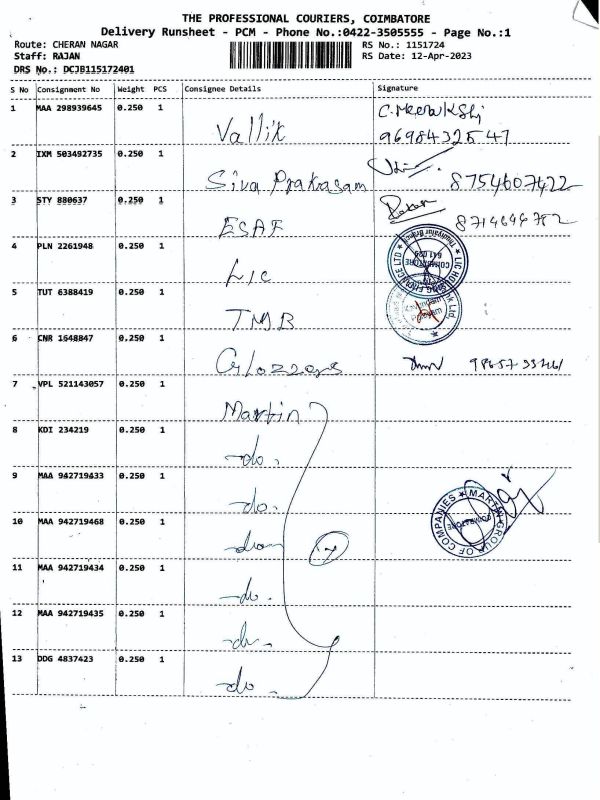 THE PROFESSIONAL COURIERS, COIMBATORE
Delivery Runsheet - PCM - Phone No.:0422-3505555 - Page No.:1
Route: CHERAN NAGAR RS No.: 1151724
Staff: RAJAN RS Date: 12-Apr-2023
DRS No.: DCJB115172401
S No Consignment No Weight PCS Consignee Details Signature
1 MAA 298939645 0.250 1 Vallik C. Meenakshi
9698432547
2 IXM 503492735 0.250 1 Siva Prakasam 8754607422
3 STY 880637 0.250 1 ESAF 8714644782
4 PLN 2261948 0.250 1 LIC
5 TUT 6388419 0.250 1 TMB
6 CNR 1648847 0.250 1 Glozzers
7 VPL 521143057 0.250 1 Martin
8 KDI 234219 0.250 1 -do.
9 MAA 942719433 0.250 1 do.
10 MAA 942719468 0.250 1 -do 7
MARTIN GROUP OF COMPANIES
COIMBATORE
11 MAA 942719434 0.250 1 -do.
12 MAA 942719435 0.250 1 -do.
13 DDG 4837423 0.250 1 -do.